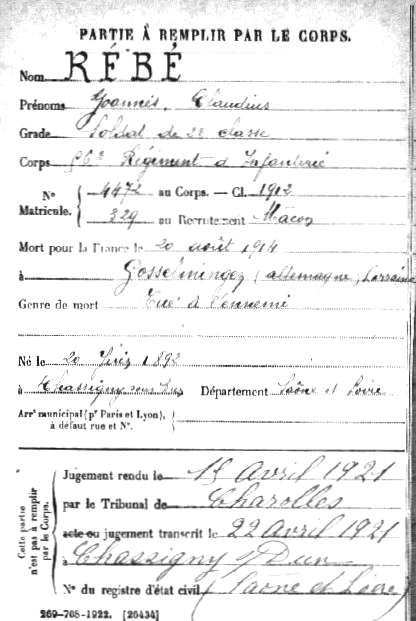 PARTIE À REMPLIR PAR LE CORPS.
Nom RÉBÉ
Prénoms Joannès, Claudius
Grade Soldat de 2e classe
Corps 56e Régiment d'Infanterie
Nº Matricule. 4472 au Corps. — Cl. 1912
329 au Recrutement Mâcon
Mort pour la France le 20 août 1914
à Gosselmingen (allemagne, Lorraine
Genre de mort Tué à l'ennemi
Né le 20 1892
à Chassigny sous Dun Département Saône et Loire
Arrt municipal (pr Paris et Lyon), à défaut rue et Nº.
Cette partie n'est pas à remplir par le Corps.
Jugement rendu le 15 Avril 1921
par le Tribunal de Charolles
acte ou jugement transcrit le 22 avril 1921
à Chassigny s/ Dun
Nº du registre d'état civil (Saône et Loire)
269-708-1922. [26434]